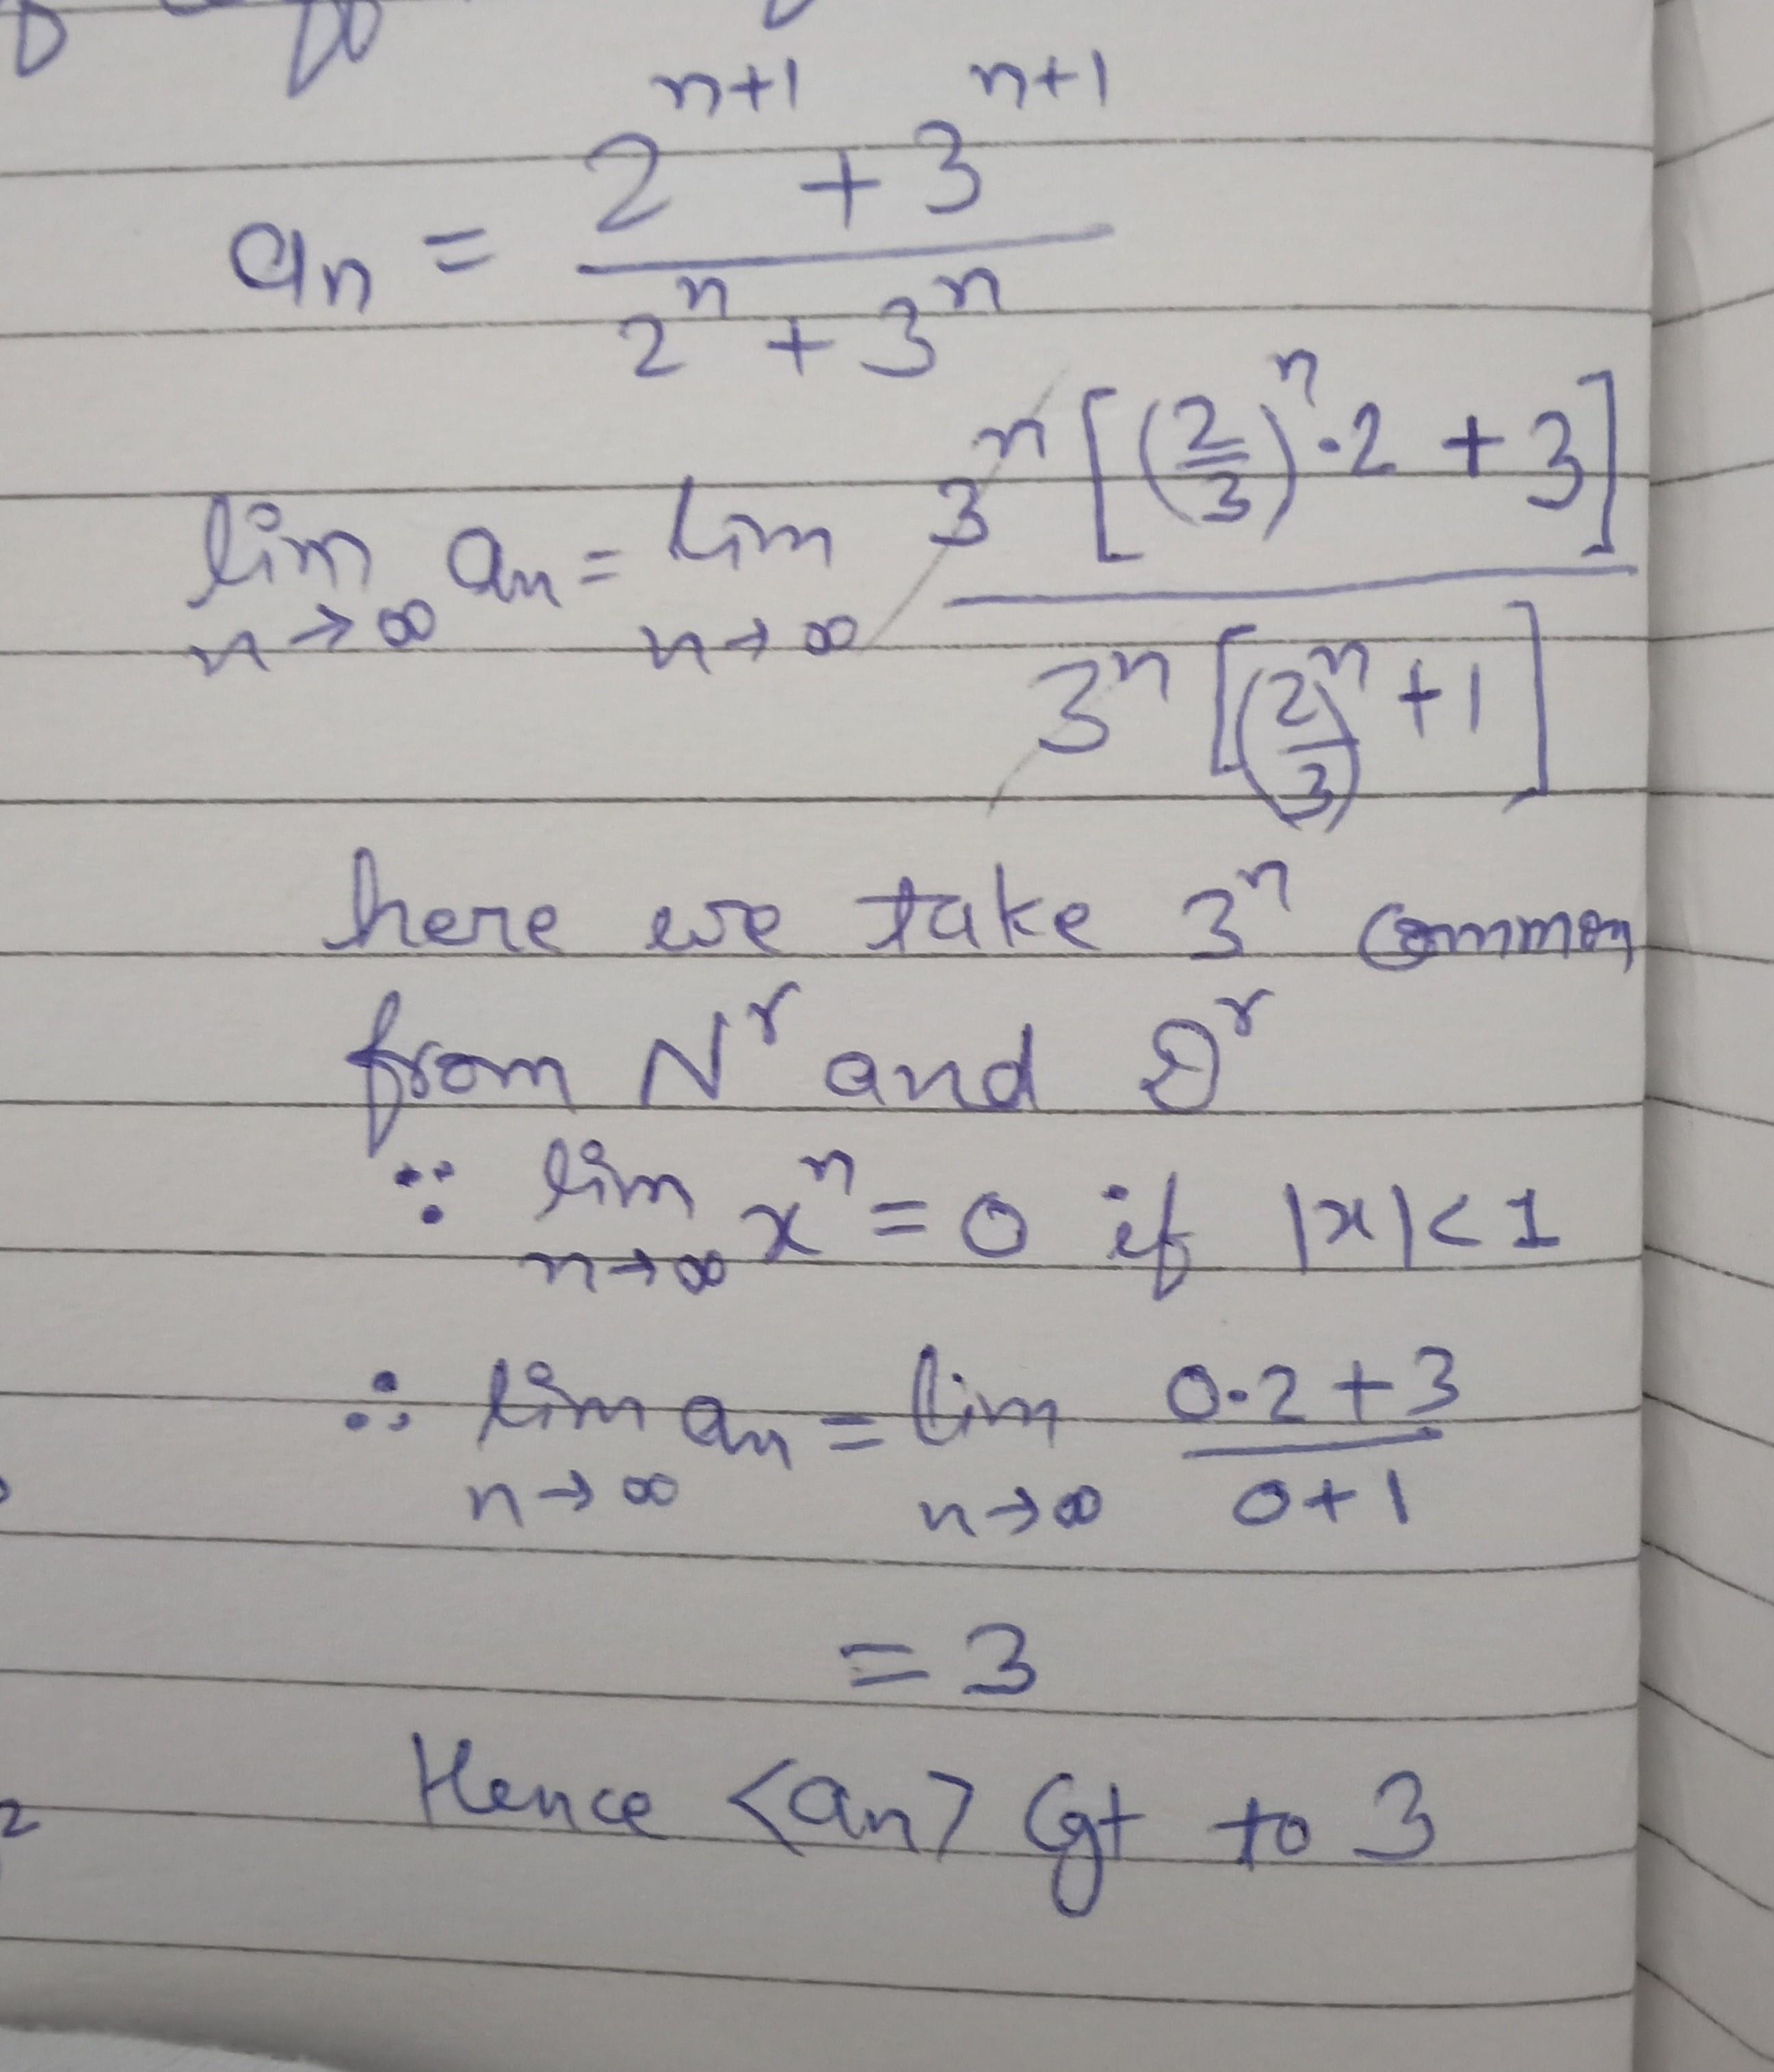 an = (2^(n+1) + 3^(n+1)) / (2^n + 3^n)
lim n→∞ an = lim n→∞ 3^n [(2/3)^n · 2 + 3] / 3^n [(2/3)^n + 1]
here we take 3^n common
from N^r and D^r
∵ lim n→∞ x^n = 0 if |x| < 1
∴ lim n→∞ an = lim n→∞ (0·2 + 3) / (0 + 1)
= 3
Hence <an> Cgt to 3